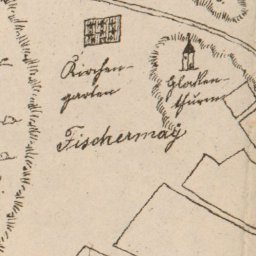 Kirchen-
garten
Glocken-
thurm
Fischermay